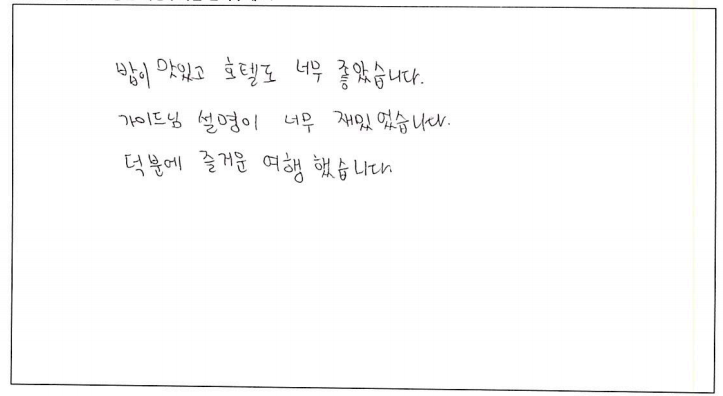 밥이 맛있고 호텔도 너무 좋았습니다.
가이드님 설명이 너무 재밌었습니다.
덕분에 즐거운 여행 했습니다.